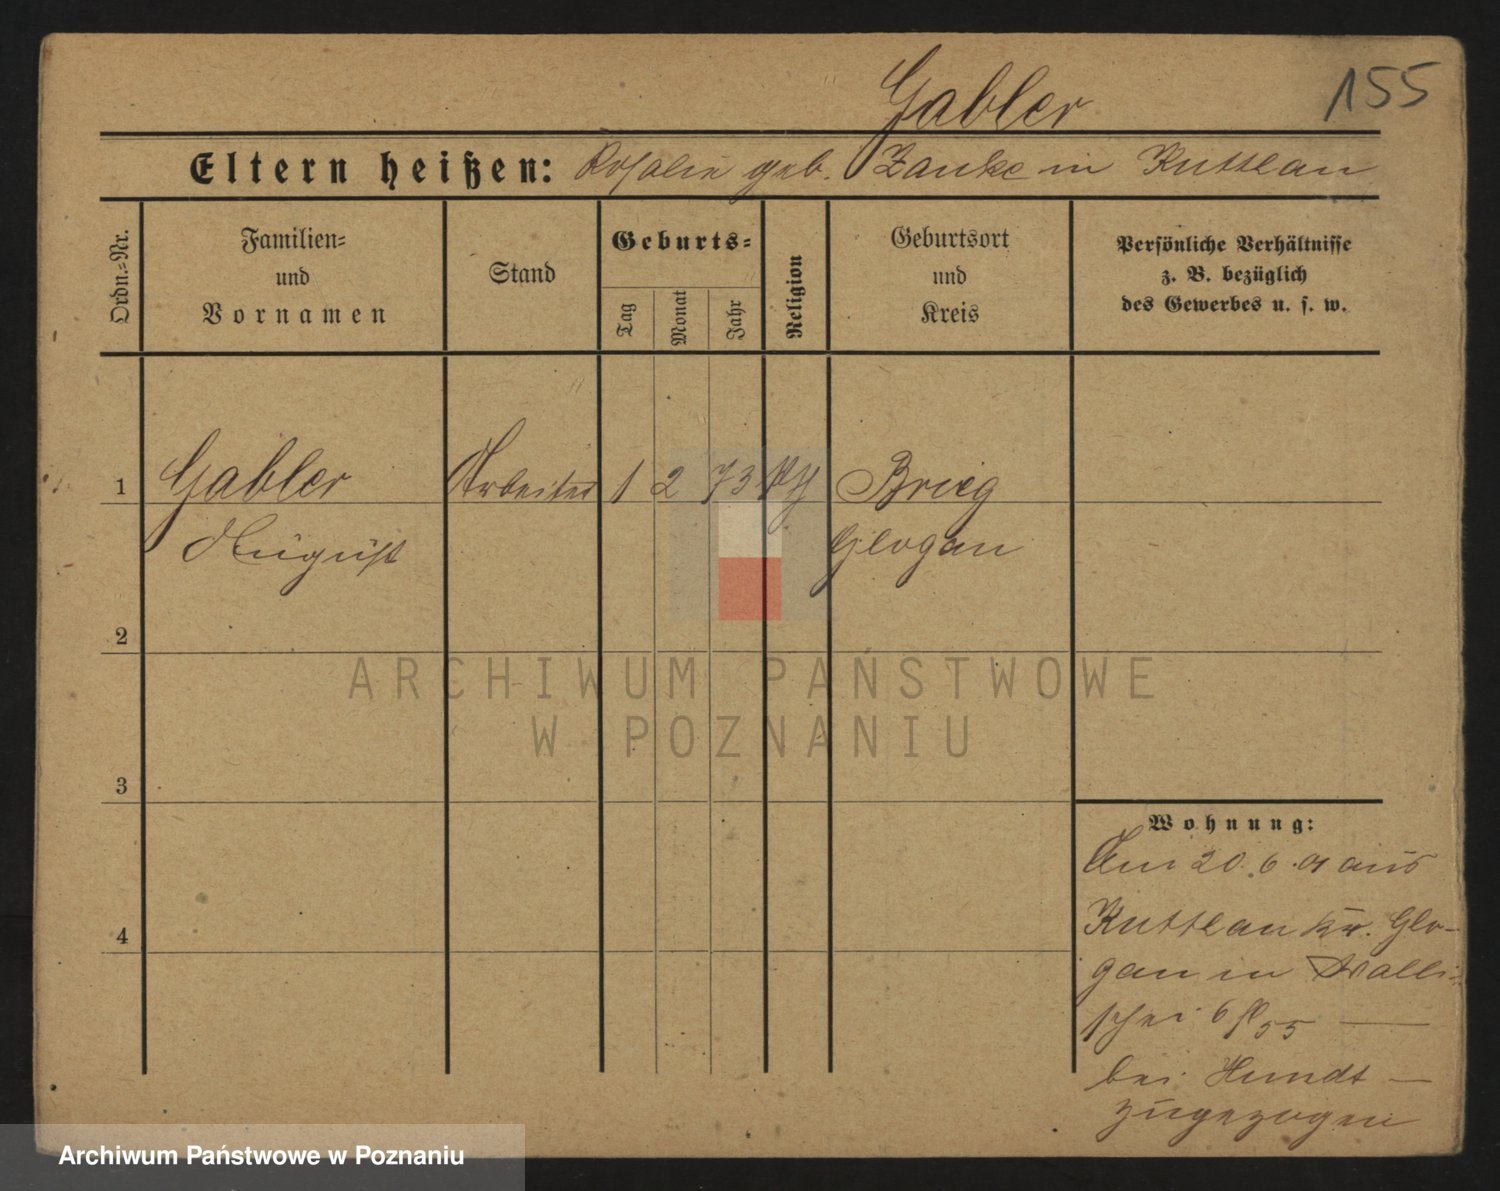 Gabler
155
Eltern heißen: Rosalie geb. Zanke in Kuttlau
Ordn.-Nr.
Familien-
und
Vornamen
Stand
Geburts-
Tag
Monat
Jahr
Religion
Geburtsort
und
Kreis
Persönliche Verhältnisse
z. B. bezüglich
des Gewerbes u. s. w.
1 Gabler Arbeiter 1 2 73 Brieg
August Glogau
2
ARCHIWUM PAŃSTWOWE
W POZNANIU
3
Wohnung:
Am 20.6.01 aus
Kuttlau Kr. Glo-
4
gau in Walli-
schei 6
bei Hundt —
zugezogen
Archiwum Państwowe w Poznaniu